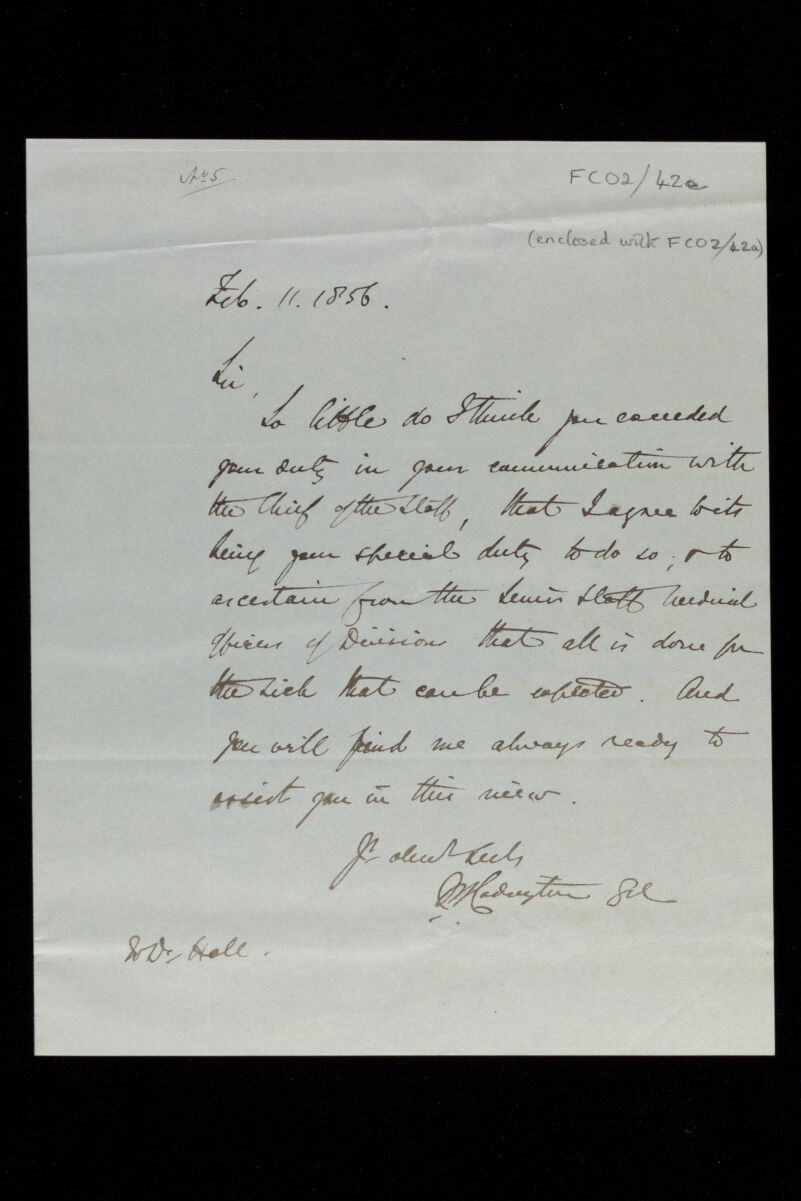 No 5
FCO2/42a
(enclosed with FCO2/42a)
Feb. 11. 1856.
Sir,
So little do I think you exceeded
your duty in your communication with
the Chief of the Staff, that I agree to its
being your special duty to do so; & to
ascertain from the Senior Staff Medical
Officers of Divisions that all is done for
the sick that can be expected. And
you will find me always ready to
assist you in this view.
Yr obedt Servt
WCodrington Gel
Dr Hall.